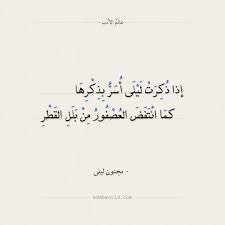 عالم الأدب
إِذا ذُكِرَتْ لَيْلَى أُسَرُّ بِذِكْرِهَا
كَمَا انْتَفَضَ العُصْفُورُ مِنْ بَلَلِ القَطْرِ
- مجنون ليلى
adabworld.com